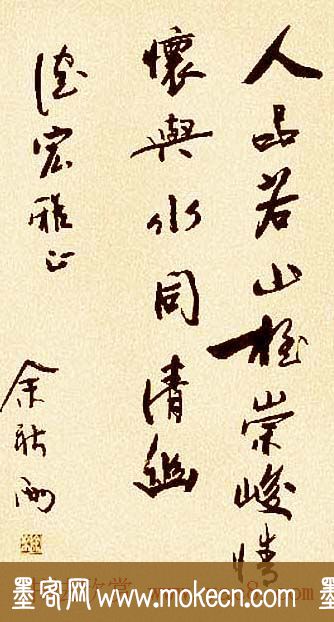 人品若山極崇峻情
懷與水同清幽
宏雅正
余秋雨
墨客网 www.mokecn.com